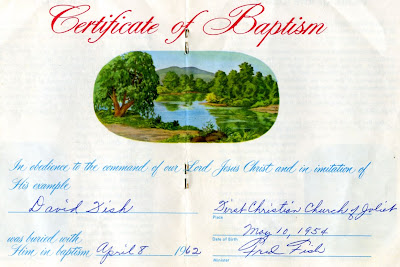 Certificate of Baptism
In obedience to the command of our Lord Jesus Christ and in imitation of
His example
David Fish First Christian Church of Joliet
Place
May 10, 1954
was buried with Date of Birth
Him in baptism April 8 1962 Fred Fish
Minister